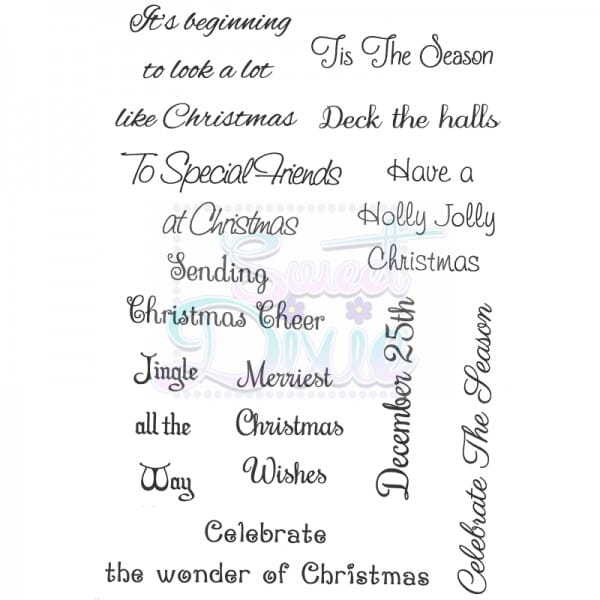 It's beginning
to look a lot
like Christmas
'Tis The Season
Deck the halls
To Special Friends
at Christmas
Have a
Holly Jolly
Christmas
Sending
Christmas Cheer
Jingle
all the
Way
Merriest
Christmas
Wishes
December 25th
Celebrate The Season
Celebrate
the wonder of Christmas
Sweet
Dixie